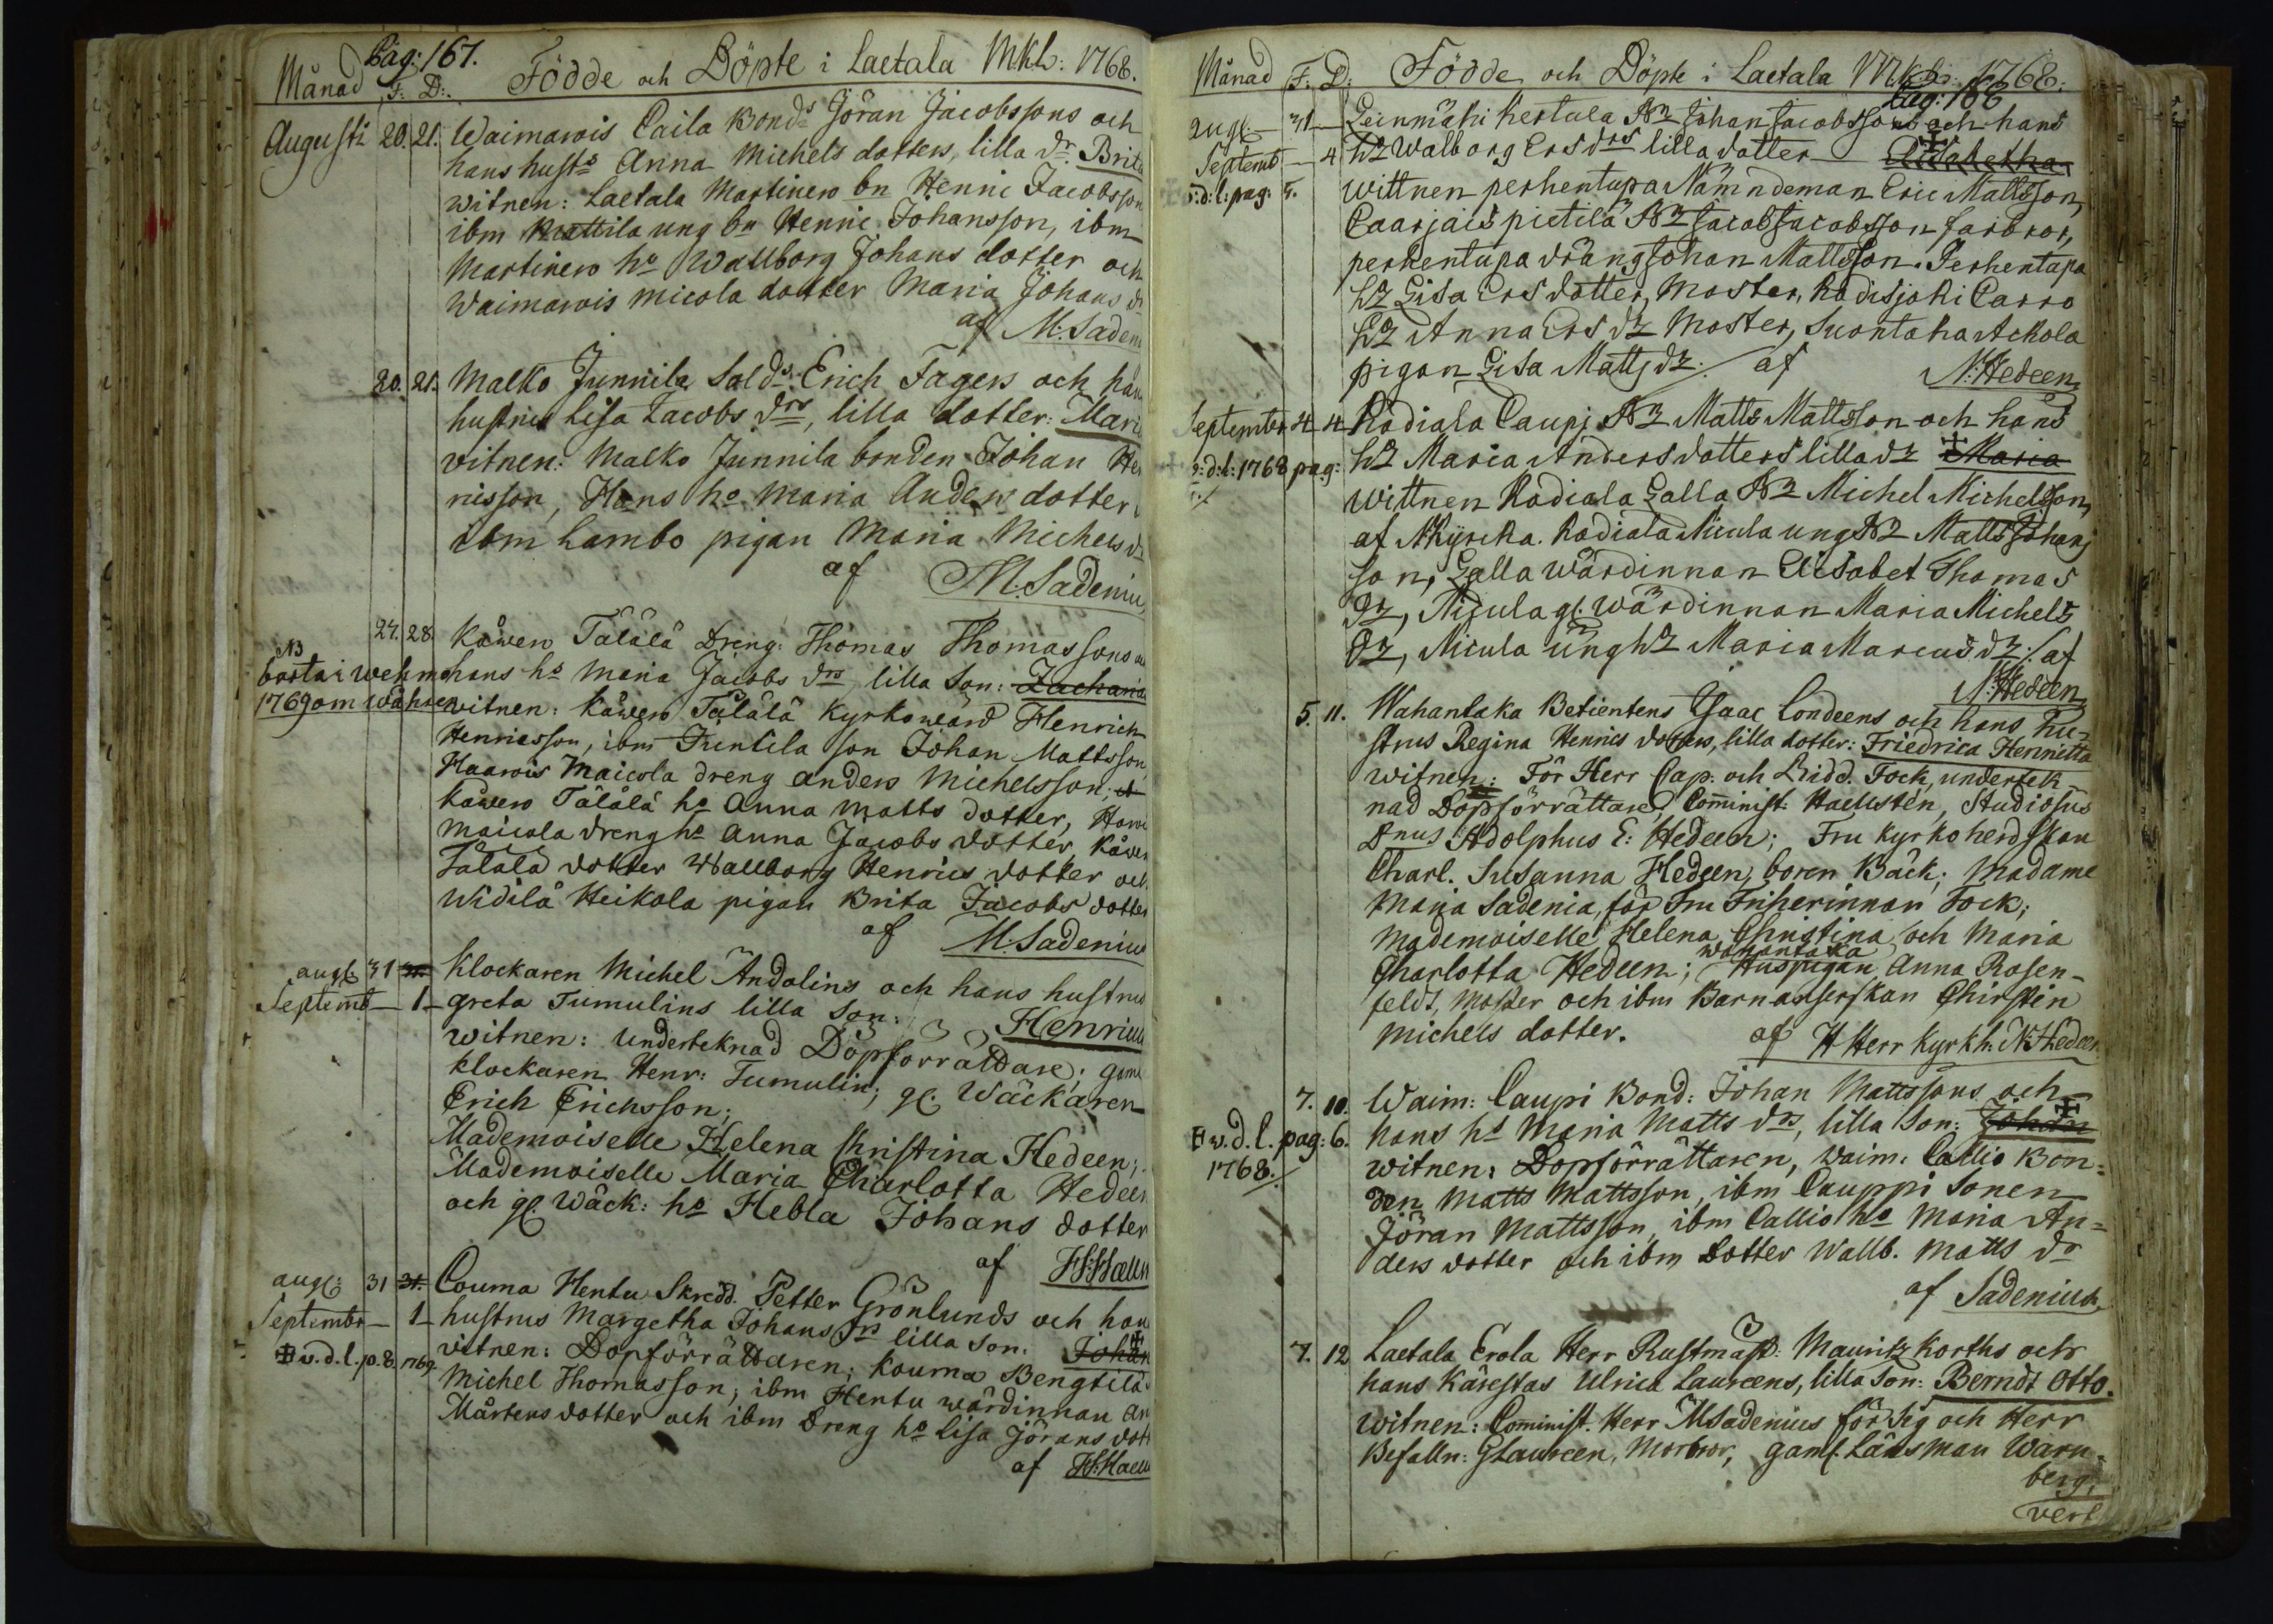 Pag: 167.
Månad F: D: Födde och Döpte i Laetala MKL: 1768.
Augusti 20. 21. Waimarois Caila Bonds Jöran Jacobssons och
hans hust: Anna Michels dotters, lilla dr. Brita
witnen: Laetala Martinen bn Henric Jacobsson
ibm Mattila ung bn Henric Johansson, ibm
Martinen ho Wallborg Johans dotter och
Waimarois Micola dotter Maria Johans d
af M: Saden
20. 21. Malko Junnila Solds. Erich Fagers och han
hustrus Lisa Jacobs drs, lilla dotter: Mari
vitnen: Malko Junnila bonden Johan Hen
risson, Hans ho Maria Anders dotter
ibm Lambo pigan Maria Michels d
af M. Sadeniu
27. 28. Kåwero Tälälä Dreng: Thomas Thomassons o
NB
borta i wehmo hans ho Maria Jacobs drs, lilla Son: Zacharia
1769 om wåhren witnen: Kåwero Tälälä Kyrkowärd Henrich
Henricsson, ibm Tuntila son Johan Mattsson
Haarois Maicola dreng Anders Michelsson;
Kåwero Tälälä ho Anna Matts dotter, Haroi
Maicola dreng ho Anna Jacobs dotter, Kåwer
Tälälä dotter Wallborg Henrics dotter och
Widilä Heikola pigan Brita Jacobs dotter
af M: Sadenius
aug: 31 Klockaren Michel Andolins och hans hustrus
Septemb 1 greta Tumulins lilla Son: Henricus
witnen: Underteknad Döpförrättare; gaml
klockaren Henr: Tumulin; gl. Wäckaren
Erich Erichsson;
Mademoiselle Helena Christina Hedeen;
Mademoiselle Maria Charlotta Hedeen
och gl. Wäck: ho Hebla Johans dotter
af H: Haelln
aug: 31 31. Couma Hentu Skredd. Petter Grönlunds och han
Septembr 1 hustrus Margetha Johans drs lilla Son. Johan
v. d. l. p. 8. 1769. vitnen: Dopförrättaren; Kouma Bengtilä
Michel Thomasson; ibm Hentu wärdinnan An
Mårtens dotter och ibm Dreng ho Lisa Jörans dott
af H: Haell
Månad F: D: Födde och Döpte i Laetala MKL: 1768:
Pag: 168
Augl 31 Leinmäki Kertula Johan Jacobssons och hans
Septemb 4 Walborg Ers drs lilla dotter Elisabetha
v: d: l: pag. 5. Wittnen perhentupa Nämndeman Eric Mattsson,
Caarjais pietilä Jacob Jacobsson farbror,
perhentupa dräng Johan Mattsson. Perhentupa
Lisa Ers dotter, Moster, Kodisjoki Carro
Anna Ers Moster, Suontaka Ackola
pigan Lisa Matts af N: Hedeen
September 4 4 Kodiala Caupi Matts Mattsson och hans
v: d: l: 1768 pag: Maria Anders dotters lilla Maria
Wittnen Kodiala Lalla Michel Michelsson,
af NKyrcka. Kodiala Nicula ung Matts Johans
son, Lalla wärdinnan Elisabet Thomas
Nicula gl. wärdinnan Maria Michels
Nicula ung Maria Marcus af
N: Hedeen
5. 11. Wahantaka Betientens Isaac Londeens och hans hu-
strus Regina Henrics dotters, lilla dotter: Friedrica Henrietta
witnen: För Herr Cap: och Ridd. Fock, undertek-
nad Döpförrättare, Cominist: Haellstén, Studiosus
Dnus Adolphus E: Hedeen; Fru Kyrkoherdskan
Charl. Susanna Hedeen, boren Bäck; Madame
Maria Sadenia, för Fru Friherinnan Fock;
Mademoiselle Helena Christina och Maria
wahantaka
Charlotta Hedeen; Huspigan Anna Rosen-
feldt, Moster och ibm Barnanserskan Chirstin
Michels dotter. af H Herr Kyrkh: N: Hedeen
7. 10. Waim: Caupi Bond: Johan Mattssons och
v. d. l. pag: 6. hans ho Maria Matts drs, lilla Son: Johan
1768. witnen: Dopförrättaren, Waim: Callio Bon=
den Matts Mattsson, ibm Cauppi Sonen
Jöran Mattsson, ibm Callio ho Maria An=
ders dotter och ibm Dotter Wallb. Matts dr
af Sadenius
7. 12 Laetala Erola Herr Rustmäst: Mauritz Korths och
hans Kärestas Ulrica Laureens, lilla Son: Berndt Otto.
witnen: Cominist. Herr MSadenius för sig och Herr
Befalln: GLaureen, Morbror, gaml. Länsman Warn-
berg,
vert